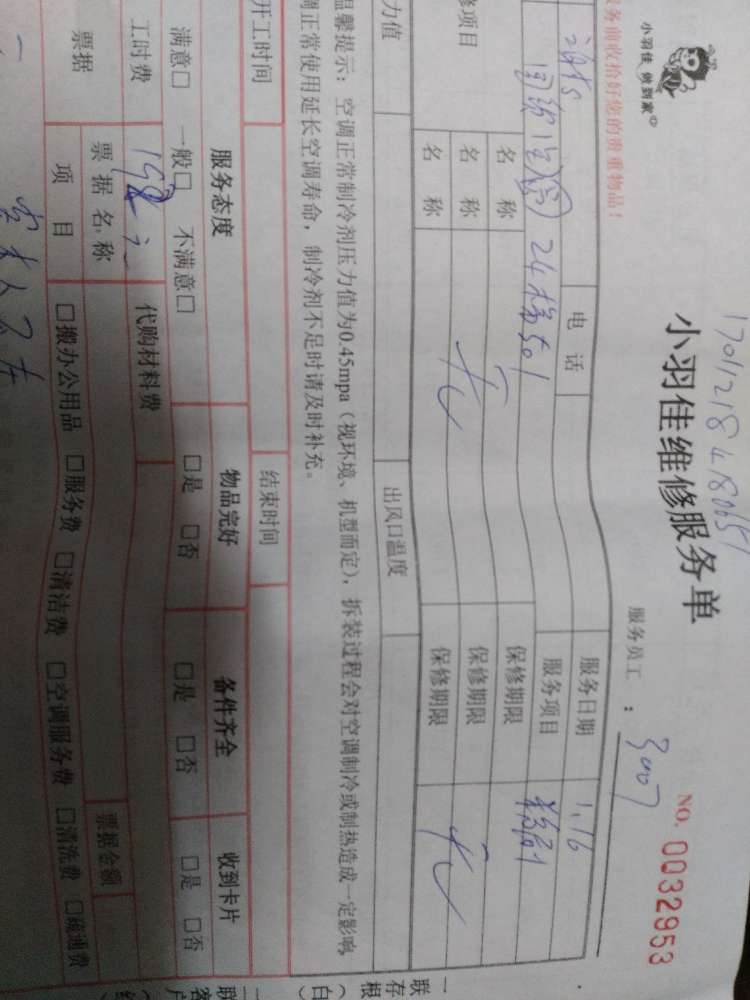 170112184180651
小羽佳 做到家
小羽佳维修服务单
NO. 0032953
服务员工：3007
务前收拾好您的贵重物品！
电话
服务日期 1.16
24栋501
服务项目
修项目
名称
保修期限
名称
保修期限
名称
保修期限
无
无
力值
出风口温度
温馨提示：空调正常制冷剂压力值为0.45mpa（视环境、机型而定），拆装过程会对空调制冷或制热造成一定影响
调正常使用延长空调寿命，制冷剂不足时请及时补充。
开工时间
结束时间
服务态度
物品完好
备件齐全
收到卡片
满意□ 一般□ 不满意□
□是 □否
□是 □否
□是 □否
工时费
代购材料费
票据
票据名称
票据金额
项目
□搬办公用品 □服务费 □清洁费 □空调服务费 □清洗费 □疏通费
一存根
联（白
一客户
联